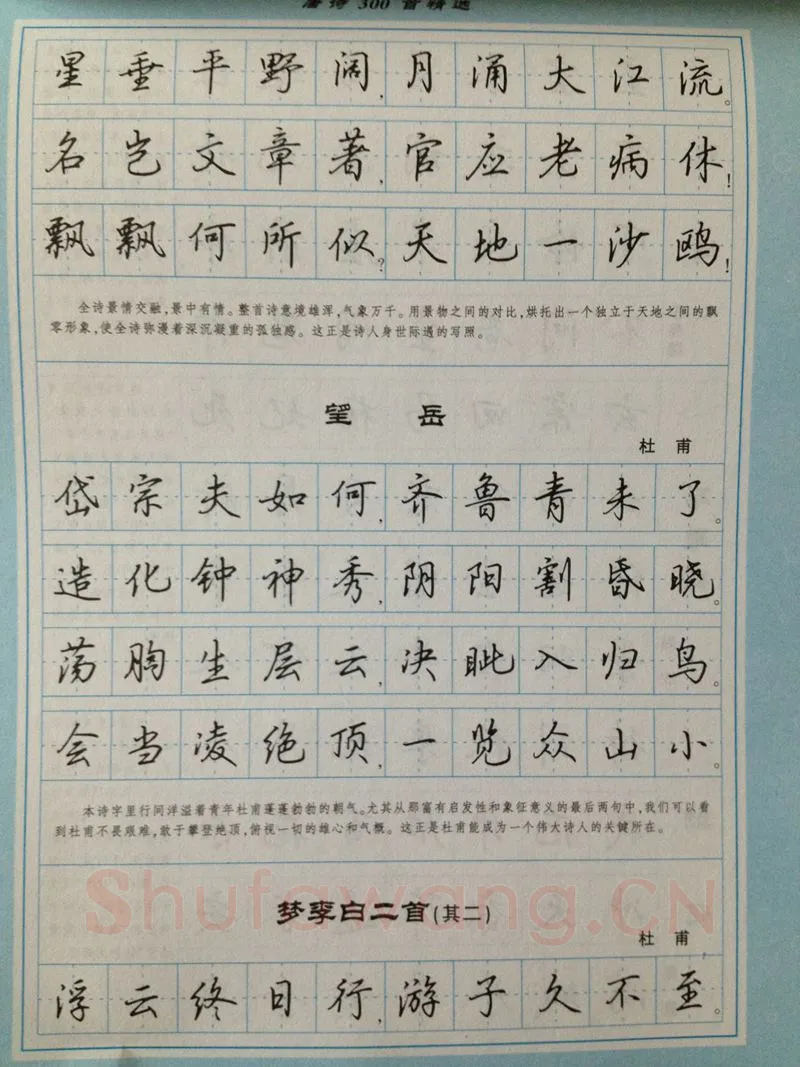 唐诗300首精选
星垂平野阔,月涌大江流。
名岂文章著,官应老病休!
飘飘何所似?天地一沙鸥!
全诗景情交融,景中有情。整首诗意境雄浑,气象万千。用景物之间的对比,烘托出一个独立于天地之间的飘
零形象,使全诗弥漫着深沉凝重的孤独感。这正是诗人身世际遇的写照。
望岳
杜甫
岱宗夫如何,齐鲁青未了。
造化钟神秀,阴阳割昏晓。
荡胸生层云,决眦入归鸟。
会当凌绝顶,一览众山小。
本诗字里行间洋溢着青年杜甫蓬蓬勃勃的朝气。尤其从那富有启发性和象征意义的最后两句中,我们可以看
到杜甫不畏艰难,敢于攀登绝顶,俯视一切的雄心和气概。这正是杜甫能成为一个伟大诗人的关键所在。
Shufawang.CN
梦李白二首(其二)
杜甫
浮云终日行,游子久不至。